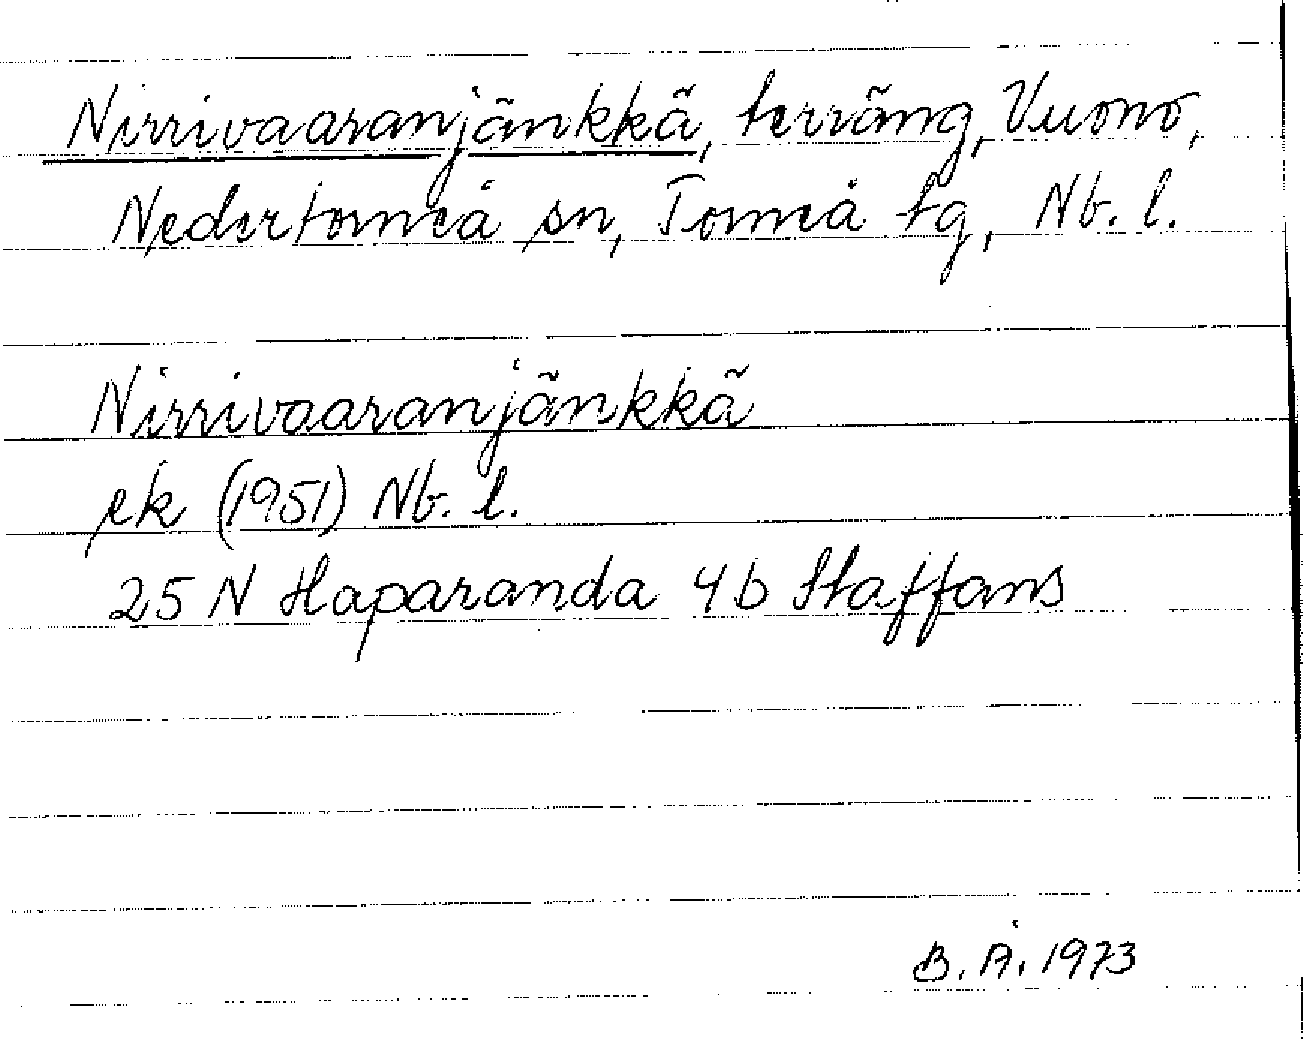 Nirrivaaranjänkkä, terräng, Vuono,
Nedertorneå sn, Torneå tg, Nb. l.
Nirrivaaranjänkkä
ek (1951) Nb. l.
25 N Haparanda 4b Staffans
B. Å. 1973